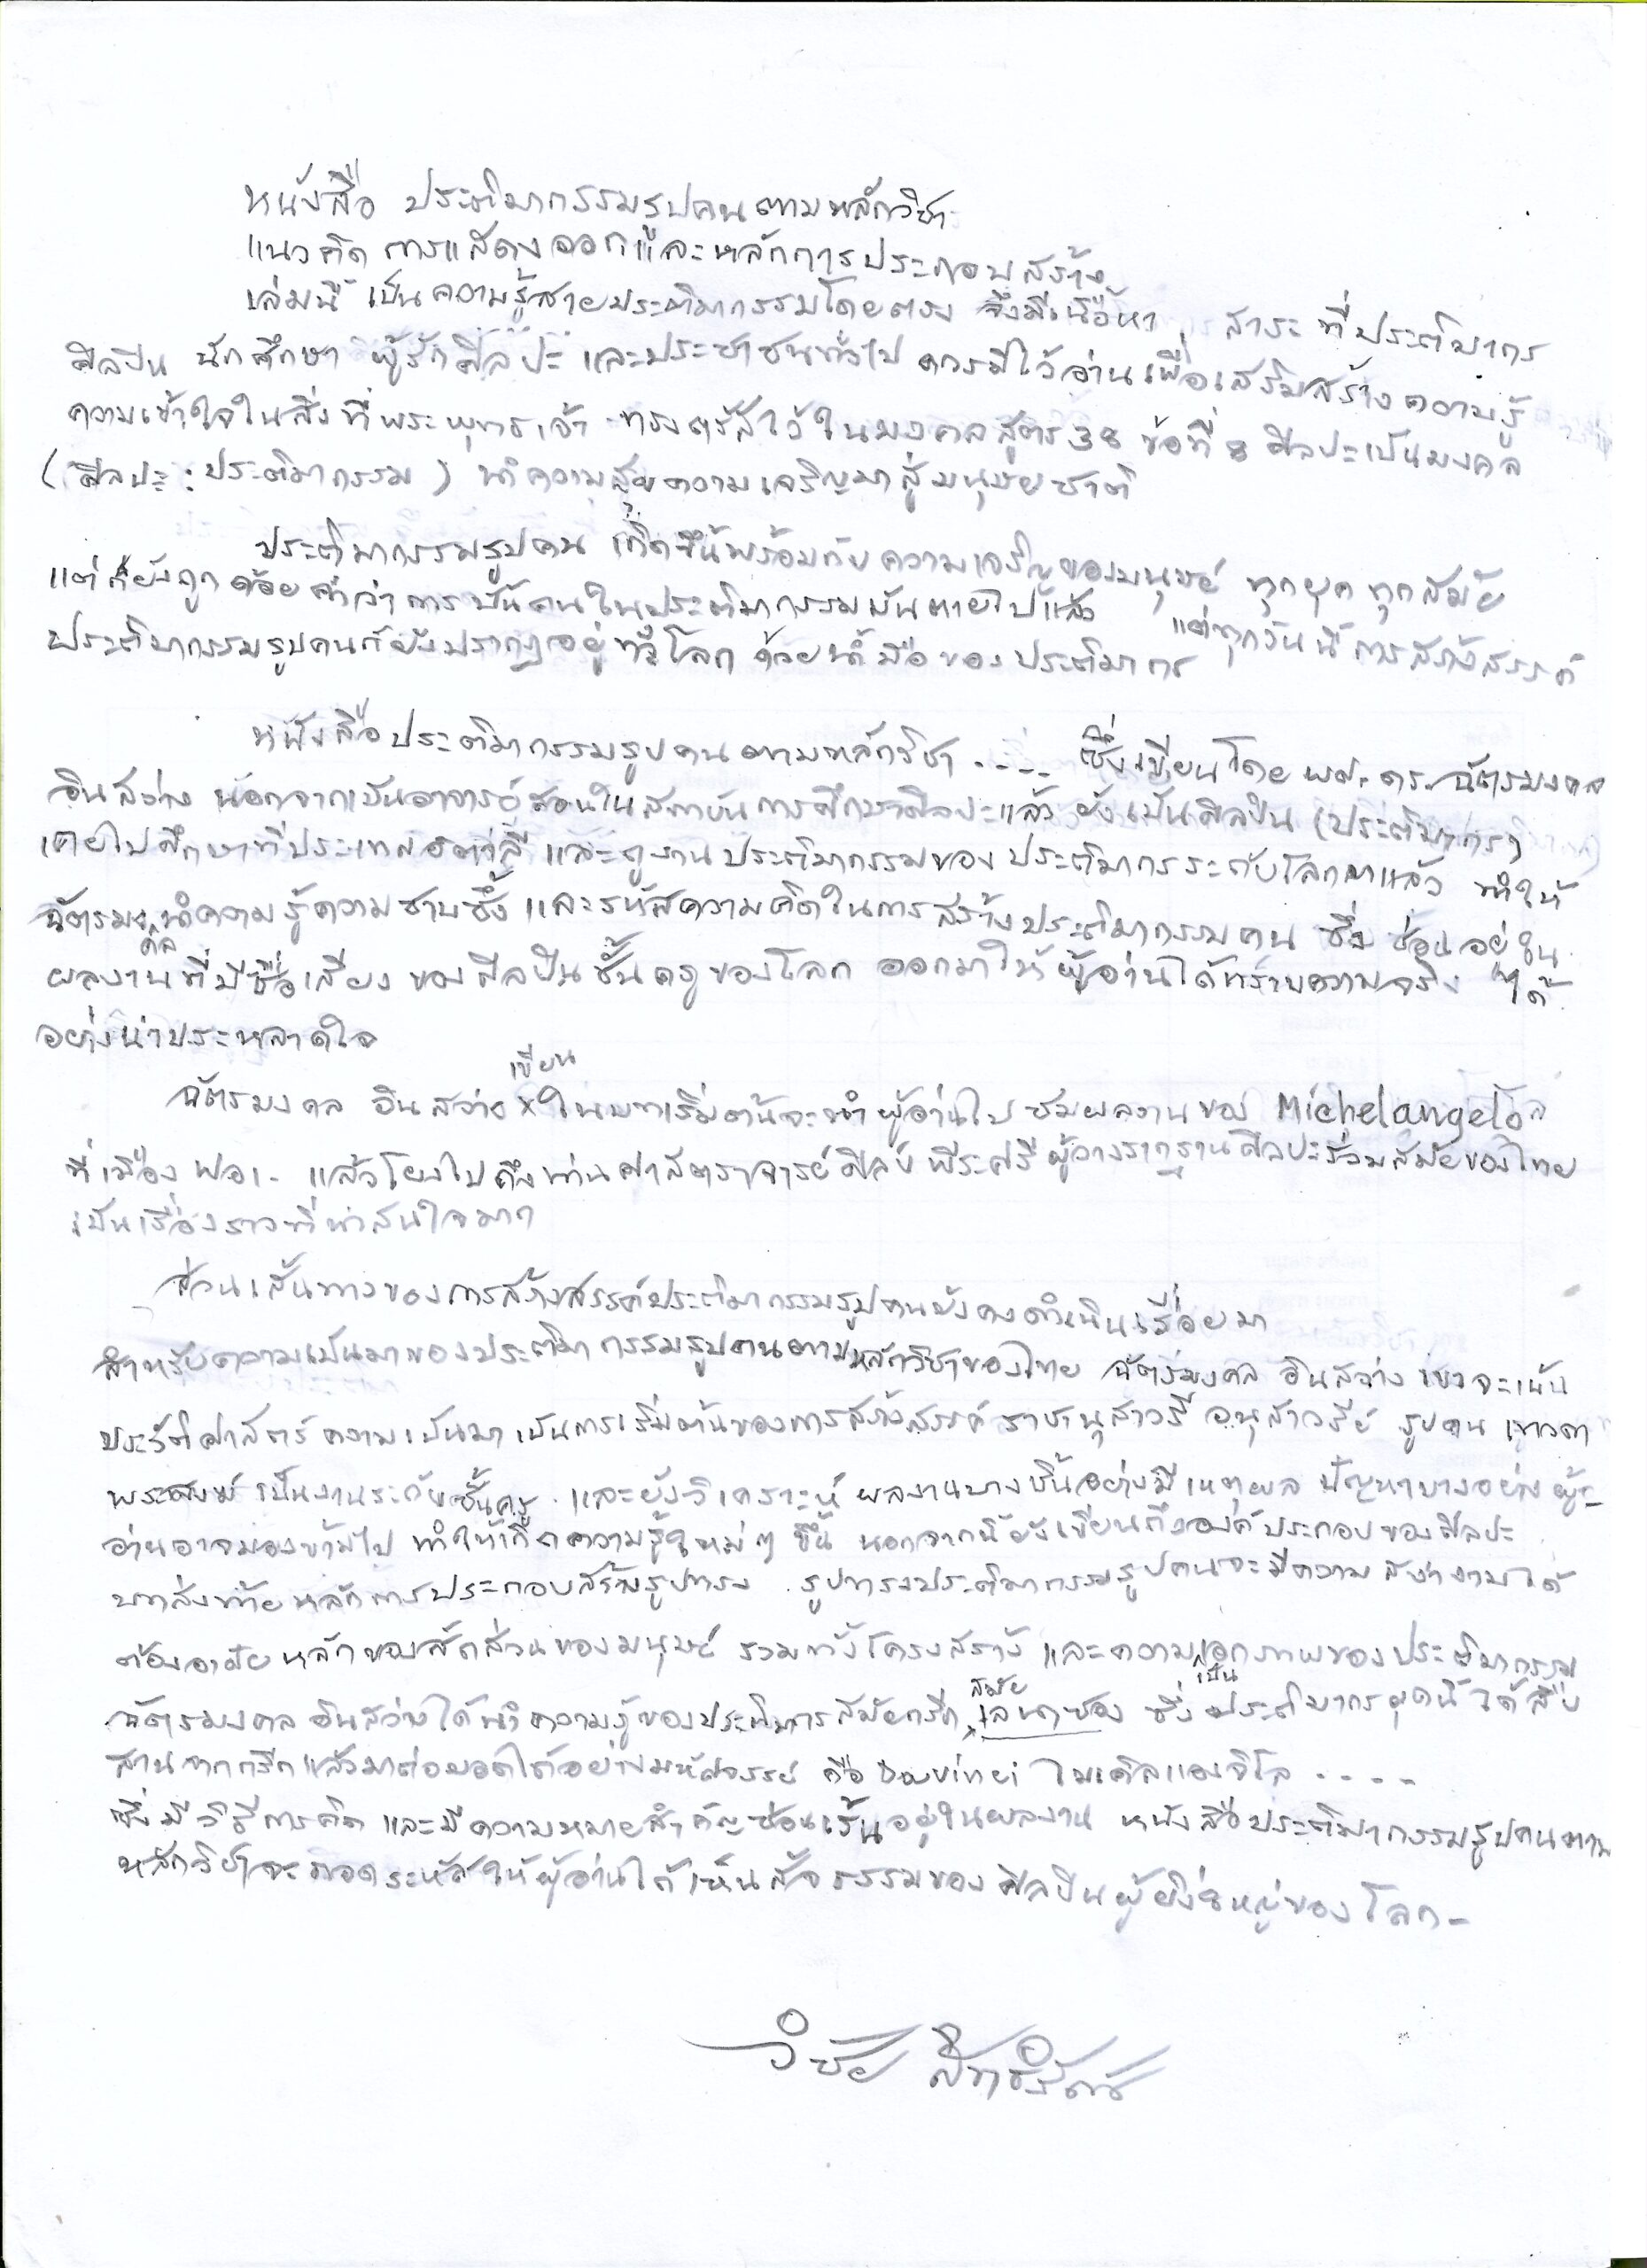 หนังสือ ประติมากรรมรูปคนตามหลักวิชา
แนวคิด การแสดงออกและหลักการประกอบสร้าง
เล่มนี้ เป็นความรู้สายประติมากรรมโดยตรง จึงมีเนื้อหา สาระ ที่ประติมากร
ศิลปิน นักศึกษา ผู้รักศิลปะ และประชาชนทั่วไป ควรมีไว้อ่านเพื่อเสริมสร้างความรู้
ความเข้าใจในสิ่งที่พระพุทธเจ้า ทรงตรัสไว้ในมงคลสูตร 38 ข้อที่ 8 ศิลปะเป็นมงคล
(ศิลปะ : ประติมากรรม) นำความสุขความเจริญมาสู่มนุษยชาติ
ประติมากรรมรูปคน เกิดขึ้นพร้อมกับความเจริญของมนุษย์ ทุกยุค ทุกสมัย
แต่ก็ยังถูกด้อยค่าว่าการปั้นคนในประติมากรรมมันตายไปแล้ว แต่ทุกวันนี้การสร้างสรรค์
ประติมากรรมรูปคนก็ยังปรากฏอยู่ทั่วโลก ด้วยน้ำมือของประติมากร
หนังสือประติมากรรมรูปคนตามหลักวิชา .... ซึ่งเขียนโดย ผศ. ดร. ฉัตรมงคล
อินสว่าง นอกจากเป็นอาจารย์สอนในสถาบันการศึกษาศิลปะแล้ว ยังเป็นศิลปิน (ประติมากร)
เคยไปศึกษาที่ประเทศอิตาลี และดูงานประติมากรรมของประติมากรระดับโลกมาแล้ว ทำให้
ฉัตรมงคล นำความรู้ความซาบซึ้ง และรหัสความคิดในการสร้างประติมากรรมคน ซึ่งซ่อนอยู่ใน
ผลงานที่มีชื่อเสียง ของศิลปินชั้นครูของโลก ออกมาให้ผู้อ่านได้ทราบความจริง ได้
อย่างน่าประหลาดใจ
ฉัตรมงคล อินสว่าง เขียน ในบทเริ่มต้นจะนำผู้อ่านไปชมผลงานของ Michelangelo
ที่เมือง ฟลอ. แล้วโยงไปถึงท่านศาสตราจารย์ศิลป์ พีระศรี ผู้วางรากฐานศิลปะร่วมสมัยของไทย
เป็นเรื่องราวที่น่าสนใจมาก
ส่วนเส้นทางของการสร้างสรรค์ประติมากรรมรูปคนยังคงดำเนินเรื่อยมา
สำหรับความเป็นมาของประติมากรรมรูปคนตามหลักวิชาของไทย ฉัตรมงคล อินสว่าง เขาจะเน้น
ประวัติศาสตร์ความเป็นมา เป็นการเริ่มต้นของการสร้างสรรค์ ราชานุสาวรีย์ อนุสาวรีย์ รูปคน เทวดา
พระสงฆ์ เป็นงานระดับชั้นครู และยังวิเคราะห์ ผลงานบางชิ้นอย่างมีเหตุผล ปัญหาบางอย่าง ผู้
อ่านอาจมองข้ามไป ทำให้เกิดความรู้ใหม่ๆ ขึ้น นอกจากนี้ยังเขียนถึงองค์ประกอบของศิลปะ
บทส่งท้าย หลักการประกอบสร้างรูปทรง รูปทรงประติมากรรมรูปคนจะมีความสง่างามได้
ต้องอาศัย หลักของสัดส่วนของมนุษย์ รวมทั้งโครงสร้าง และความเอกภาพของประติมากรรม
ฉัตรมงคล อินสว่าง ได้นำความรู้ของประติมากรสมัยกรีก สมัย ซึ่งเป็นประติมากรยุคนี้ ได้สืบ
สานจากกรีก แล้วมาต่อยอดได้อย่างมหัศจรรย์ คือ Davinci ไมเคิลแองจิโล ....
ซึ่งมีวิธีการคิด และมีความหมายสำคัญซ่อนเร้นอยู่ในผลงาน หนังสือประติมากรรมรูปคนตาม
หลักวิชา จะถอดระหัสให้ผู้อ่านได้เห็นสัจธรรมของศิลปินผู้ยิ่งใหญ่ของโลก
วิชัย สิทธิรัตน์